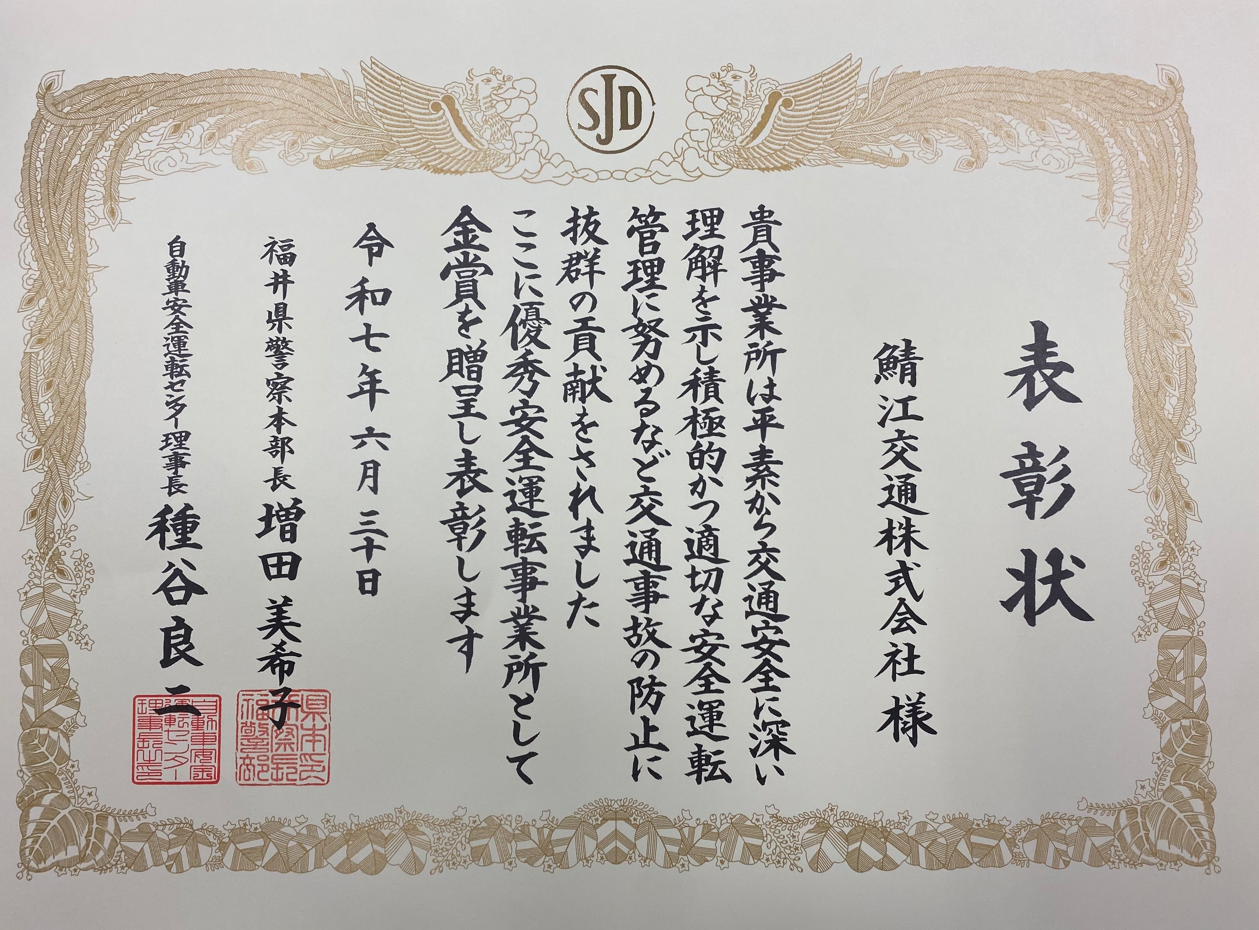 SJD
表彰状
鯖江交通株式会社 様
貴事業所は平素から交通安全に深い
理解を示し積極的かつ適切な安全運転
管理に努めるなど交通事故の防止に
抜群の貢献をされました
ここに優秀安全運転事業所として
金賞を贈呈し表彰します
令和七年六月三十日
福井県警察本部長 増田 美希子
県本部長印福井警察
自動車安全運転センター理事長 種谷良二
自動車安全運転センター理事長之印